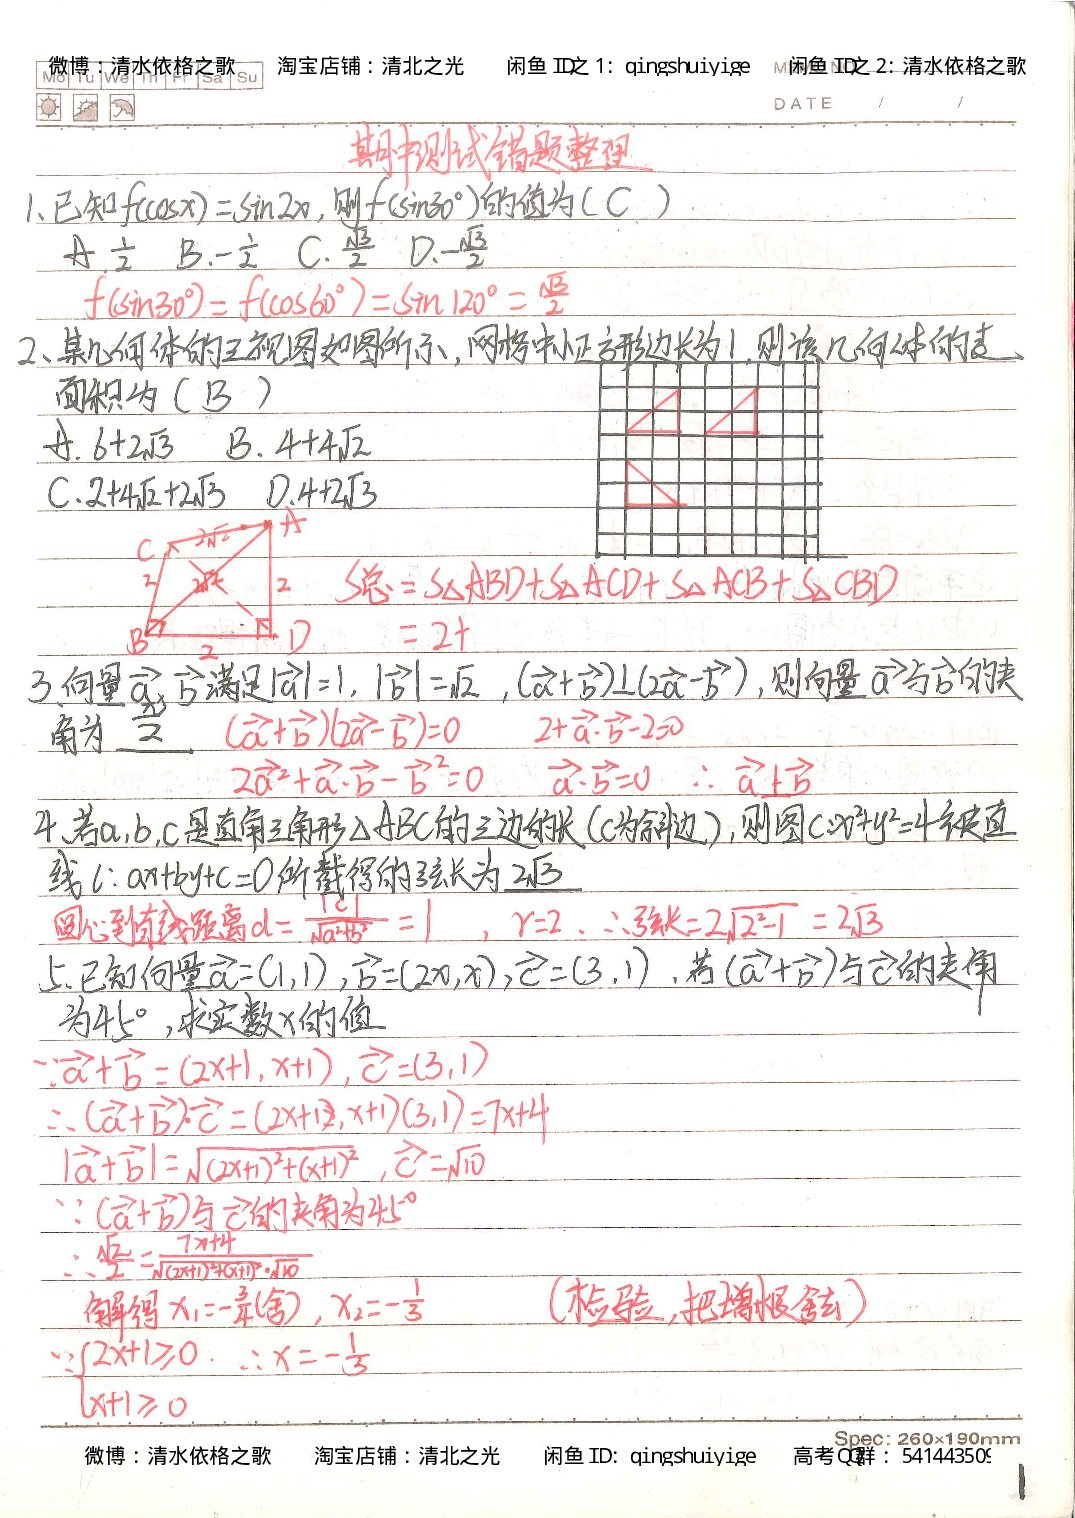 微博：清水依格之歌 淘宝店铺：清北之光 闲鱼 ID之 1: qingshuiyige 闲鱼 ID之 2: 清水依格之歌
Mo Tu We Th Fr Sa Su
DATE / /
期中测试错题整理
1、已知f(cosx)=sin2x,则f(sin30°)的值为( C )
A. 1/2 B.-1/2 C. √3/2 D.-√3/2
f(sin30°)=f(cos60°)=sin120°=√3/2
2、某几何体的三视图如图所示,网格中小正方形边长为1,则该几何体的表
面积为( B )
A. 6+2√3 B. 4+4√2
C.2+4√2+2√3 D.4+2√3
C 2√2 A
2 2√2 2
B 2 D
S总=S△ABD+S△ACD+S△ACB+S△CBD
=2+
3.向量a→,b→满足|a→|=1,|b→|=√2,(a→+b→)⊥(2a→-b→),则向量a→与b→的夹
角为 π/2 (a→+b→)(2a→-b→)=0 2+a→·b→-2=0
2a→²+a→·b→-b→²=0 a→·b→=0 ∴ a→⊥b→
4、若a,b,c是直角三角形△ABC的三边的长(c为斜边),则圆C:x²+y²=4被直
线l:ax+by+c=0所截得的弦长为 2√3
圆心到直线距离d=|c|/√(a²+b²)=1,r=2.∴弦长=2√(2²-1)=2√3
5.已知向量a→=(1,1),b→=(2x,x),c→=(3,1).若(a→+b→)与c→的夹角
为45°,求实数x的值
∵a→+b→=(2x+1,x+1),c→=(3,1)
∴(a→+b→)·c→=(2x+1,x+1)(3,1)=7x+4
|a→+b→|=√((2x+1)²+(x+1)²),c→=√10
∵(a→+b→)与c→的夹角为45°
∴√2/2=(7x+4)/(√((2x+1)²+(x+1)²)·√10)
解得x₁=-3/4(舍),x₂=-1/3 (检验,把增根舍去)
∵{2x+1≥0. ∴x=-1/3
x+1≥0
Spec: 260×190mm
微博：清水依格之歌 淘宝店铺：清北之光 闲鱼 ID: qingshuiyige 高考QQ群：541443509
1